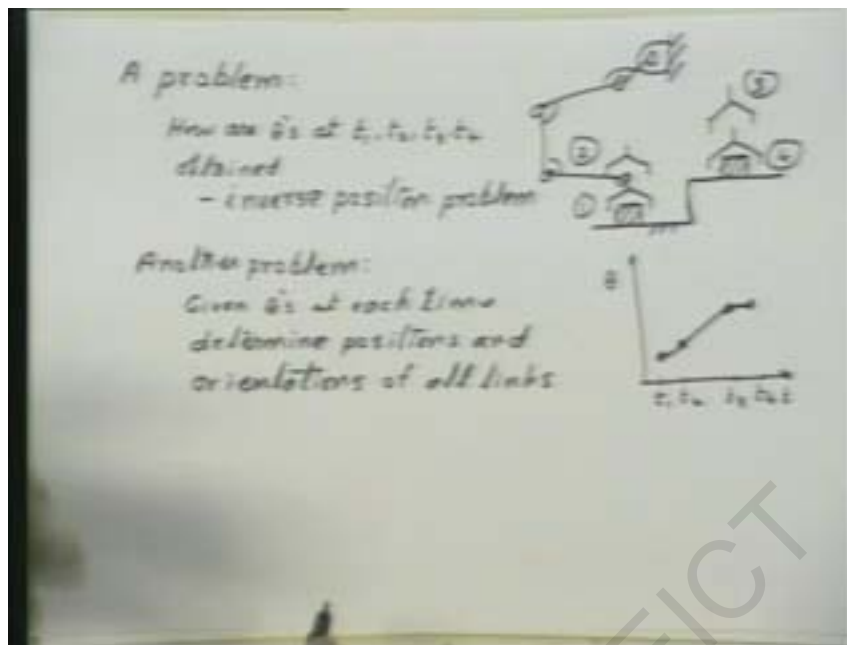 A problem:
How are θ's at t₁, t₂, t₃, t₄
obtained
- inverse position problem
Another problem:
Given θ's at each time
determine positions and
orientations of all links
3
2
4
1
θ
t₁ t₂ t₃ t₄ t
EICT